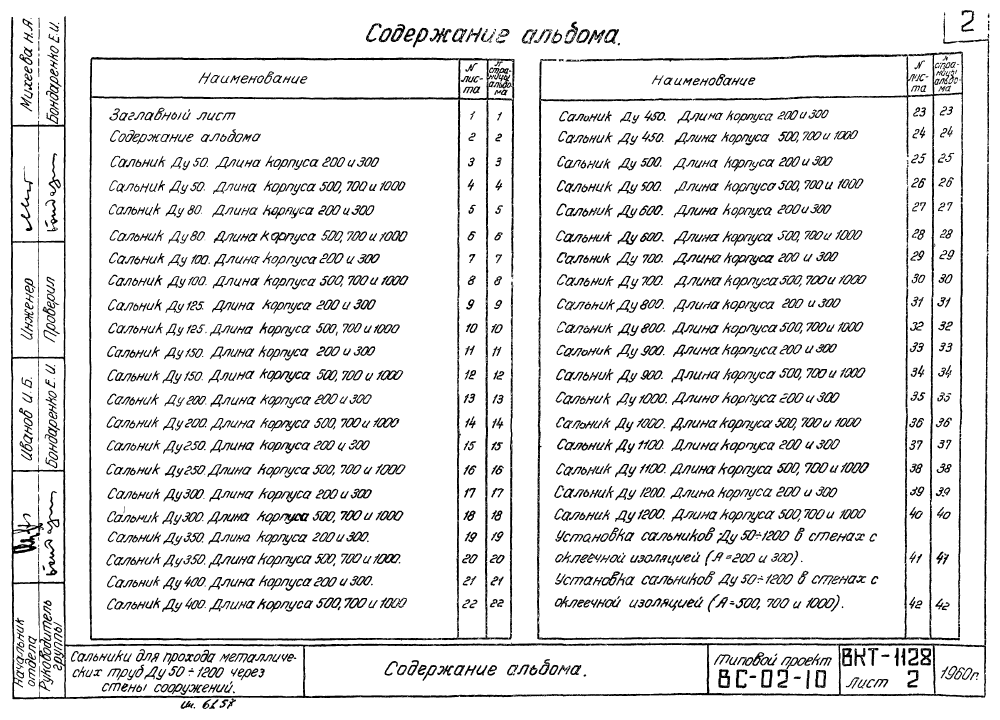 2
Содержание альбома.
Наименование
N листа
N страницы альбома
Заглавный лист 1 1
Содержание альбома 2 2
Сальник Ду 50. Длина корпуса 200 и 300 3 3
Сальник Ду 50. Длина корпуса 500, 700 и 1000 4 4
Сальник Ду 80. Длина корпуса 200 и 300 5 5
Сальник Ду 80. Длина корпуса 500, 700 и 1000 6 6
Сальник Ду 100. Длина корпуса 200 и 300 7 7
Сальник Ду 100. Длина корпуса 500, 700 и 1000 8 8
Сальник Ду 125. Длина корпуса 200 и 300 9 9
Сальник Ду 125. Длина корпуса 500, 700 и 1000 10 10
Сальник Ду 150. Длина корпуса 200 и 300 11 11
Сальник Ду 150. Длина корпуса 500, 700 и 1000 12 12
Сальник Ду 200. Длина корпуса 200 и 300 13 13
Сальник Ду 200. Длина корпуса 500, 700 и 1000 14 14
Сальник Ду 250. Длина корпуса 200 и 300 15 15
Сальник Ду 250 Длина корпуса 500, 700 и 1000 16 16
Сальник Ду 300. Длина корпуса 200 и 300 17 17
Сальник Ду 300. Длина корпуса 500, 700 и 1000 18 18
Сальник Ду 350. Длина корпуса 200 и 300. 19 19
Сальник Ду 350. Длина корпуса 500, 700 и 1000. 20 20
Сальник Ду 400. Длина корпуса 200 и 300. 21 21
Сальник Ду 400. Длина корпуса 500, 700 и 1000 22 22
Наименование
N листа
N страницы альбома
Сальник Ду 450. Длина корпуса 200 и 300 23 23
Сальник Ду 450. Длина корпуса 500, 700 и 1000 24 24
Сальник Ду 500. Длина корпуса 200 и 300 25 25
Сальник Ду 500. Длина корпуса 500, 700 и 1000 26 26
Сальник Ду 600. Длина корпуса 200 и 300 27 27
Сальник Ду 600. Длина корпуса 500, 700 и 1000 28 28
Сальник Ду 700. Длина корпуса 200 и 300 29 29
Сальник Ду 700. Длина корпуса 500, 700 и 1000 30 30
Сальник Ду 800. Длина корпуса 200 и 300 31 31
Сальник Ду 800. Длина корпуса 500, 700 и 1000 32 32
Сальник Ду 900. Длина корпуса 200 и 300 33 33
Сальник Ду 900. Длина корпуса 500, 700 и 1000 34 34
Сальник Ду 1000. Длина корпуса 200 и 300 35 35
Сальник Ду 1000. Длина корпуса 500, 700 и 1000 36 36
Сальник Ду 1100. Длина корпуса 200 и 300 37 37
Сальник Ду 1100. Длина корпуса 500, 700 и 1000 38 38
Сальник Ду 1200. Длина корпуса 200 и 300 39 39
Сальник Ду 1200. Длина корпуса 500, 700 и 1000 40 40
Установка сальников Ду 50÷1200 в стенах с
оклеечной изоляцией (А=200 и 300). 41 41
Установка сальников Ду 50÷1200 в стенах с
оклеечной изоляцией (А=500, 700 и 1000). 42 42
Михеева Н.А.
Бондаренко Е.И.
Инженер
Проверил
Иванов И.Б.
Бондаренко Е.И.
Начальник отдела
Руководитель группы
Сальники для прохода металличе-
ских труб Ду 50÷1200 через
стены сооружений.
Содержание альбома.
типовой проект
ВС-02-10
ВКТ-1128
лист 2
1960г.